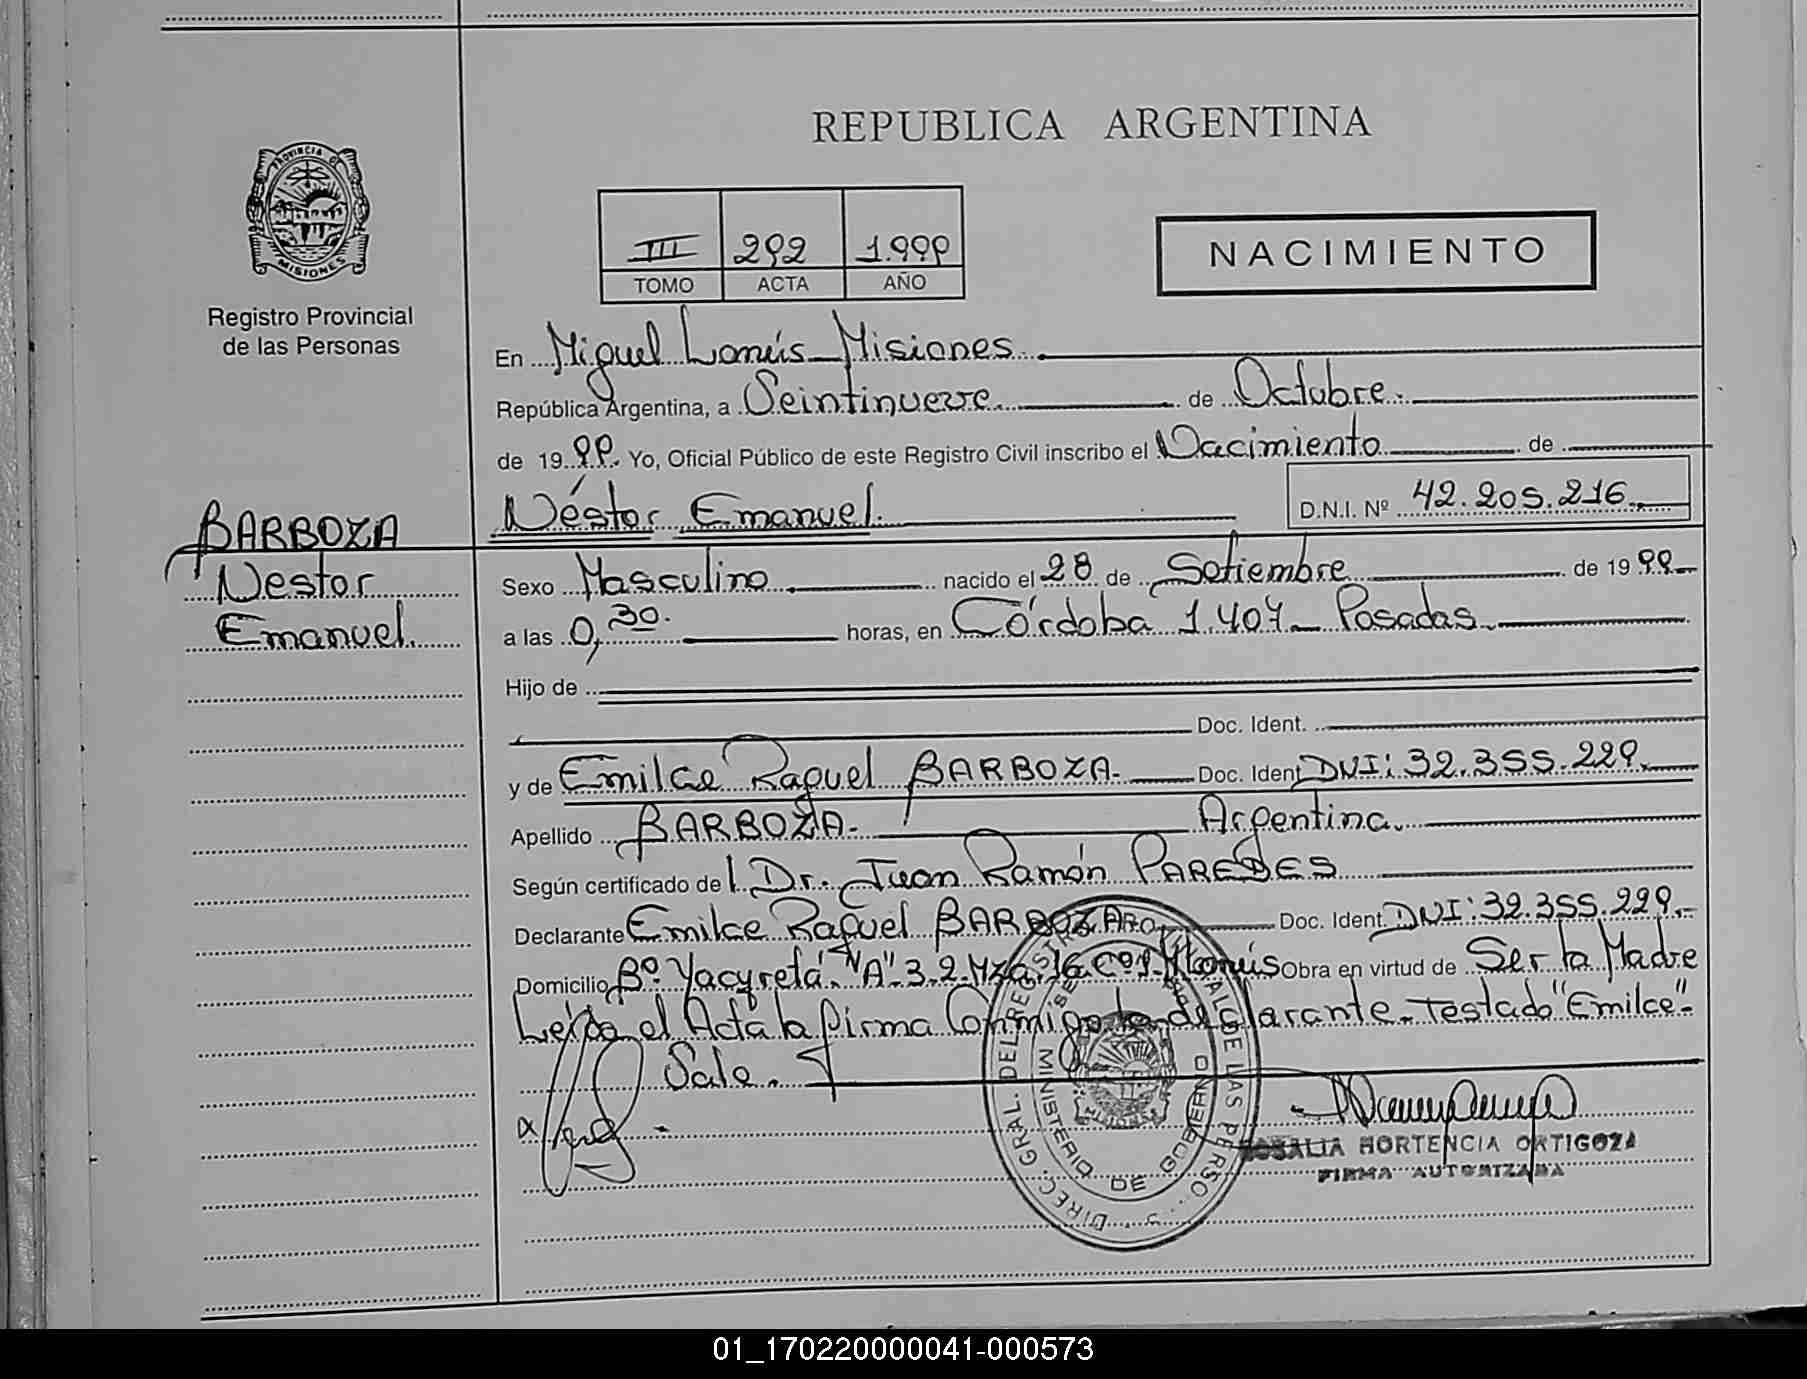 REPUBLICA ARGENTINA
PROVINCIA DE
MISIONES
Registro Provincial
de las Personas
III 292 1.999
TOMO ACTA AÑO
NACIMIENTO
En Miguel Lanús - Misiones.
República Argentina, a Veintinueve de Octubre.
de 19 99. Yo, Oficial Público de este Registro Civil inscribo el Nacimiento de
Néstor Emanuel. D.N.I. Nº 42.205.216.
BARBOZA
Nestor
Emanuel.
Sexo Masculino. nacido el 28 de Setiembre de 19 99.
a las 0,30. horas, en Córdoba 1.407 - Posadas.
Hijo de
Doc. Ident.
y de Emilce Raquel BARBOZA. Doc. Ident. DNI: 32.355.229.
Apellido BARBOZA. Argentina.
Según certificado del Dr. Juan Ramón PAREDES
Declarante Emilce Raquel BARBOZA Doc. Ident. DNI: 32.355.229.
Domicilio Bº Yacyretá. "A" 3.2. Mza. 16 Cº 1. M Lanús Obra en virtud de Ser la Madre
Leída el Acta la firma Conmigo la declarante. Testado "Emilce".
Vale.
DIREC. GRAL. DEL REGISTRO PROVINCIAL DE LAS PERSONAS
MINISTERIO DE GOBIERNO
MISIONES
ROSALIA HORTENCIA ORTIGOZA
FIRMA AUTORIZADA
01_170220000041-000573